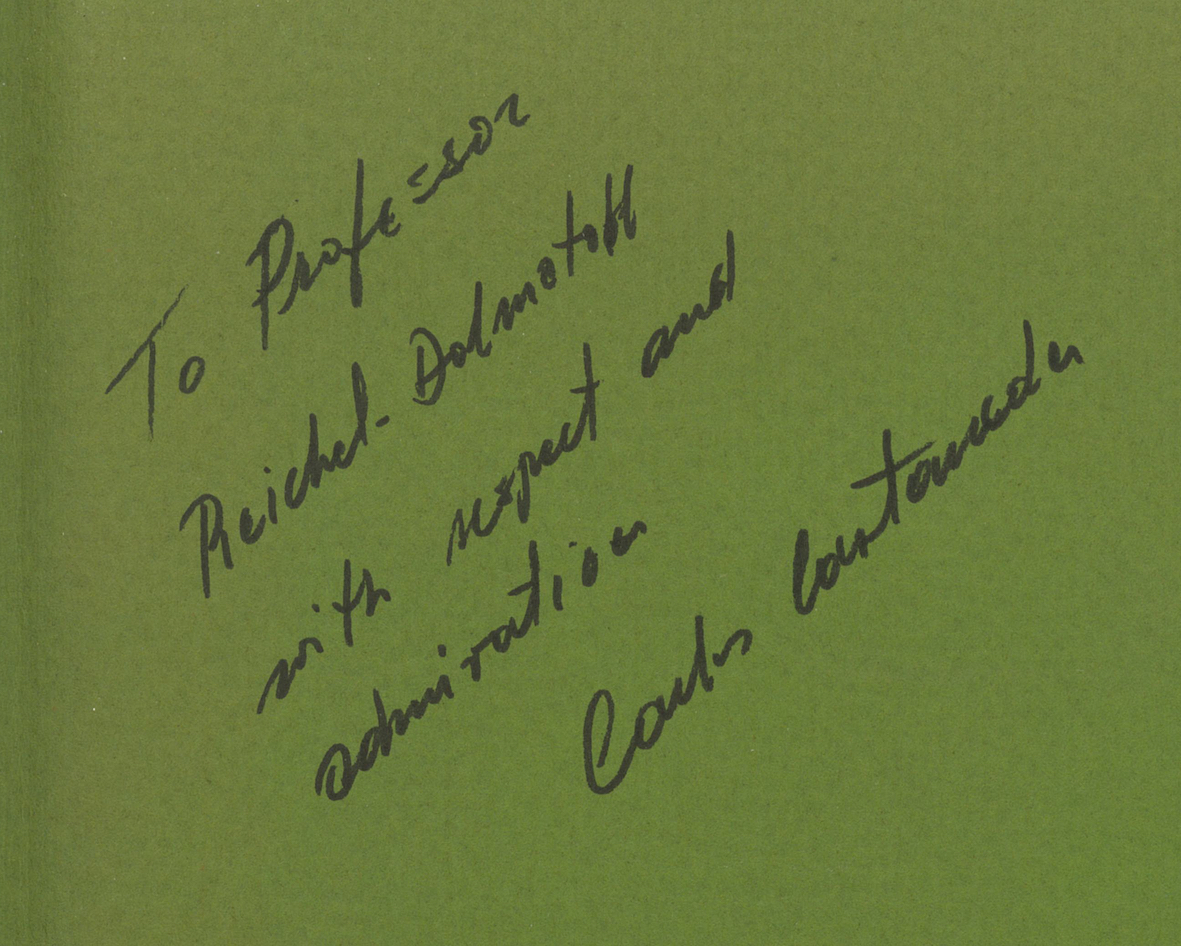 To Professor
Reichel-Dolmatoff
with respect and
admiration
Carlos Castaneda